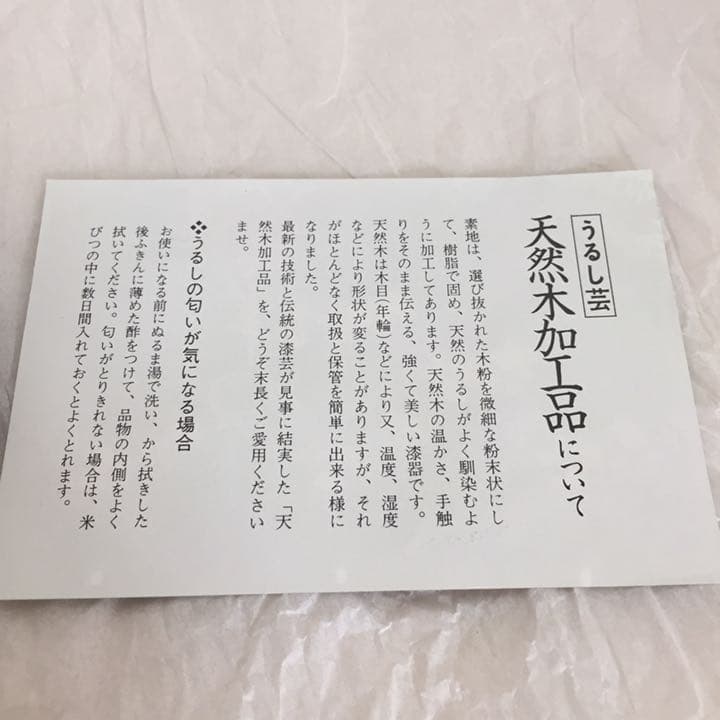 うるし芸
天然木加工品について
素地は、選び抜かれた木粉を微細な粉末状にし
て、樹脂で固め、天然のうるしがよく馴染むよ
うに加工してあります。天然木の温かさ、手触
りをそのまま伝える、強くて美しい漆器です。
天然木は木目(年輪)などにより又、温度、湿度
などにより形状が変ることがありますが、それ
がほとんどなく取扱と保管を簡単に出来る様に
なりました。
最新の技術と伝統の漆芸が見事に結実した「天
然木加工品」を、どうぞ末長くご愛用ください
ませ。
❖うるしの匂いが気になる場合
お使いになる前にぬるま湯で洗い、から拭きした
後ふきんに薄めた酢をつけて、品物の内側をよく
拭いてください。匂いがとりきれない場合は、米
びつの中に数日間入れておくとよくとれます。